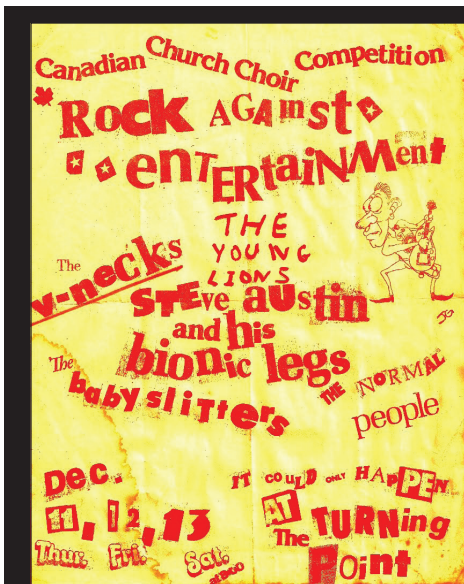 Canadian Church Choir Competition
ROCK AGAinst
enTERtaiNMent
THE
YOUNG
LIONS
The
v-necks
STEve aUstin
and his
bionic legs
The
baby sliTTers
THE NORMAL
people
Dec.
11, 12, 13
Thur. Fri. Sat.
IT coULD ONLY HApPEN
AT
The TURNing
Point